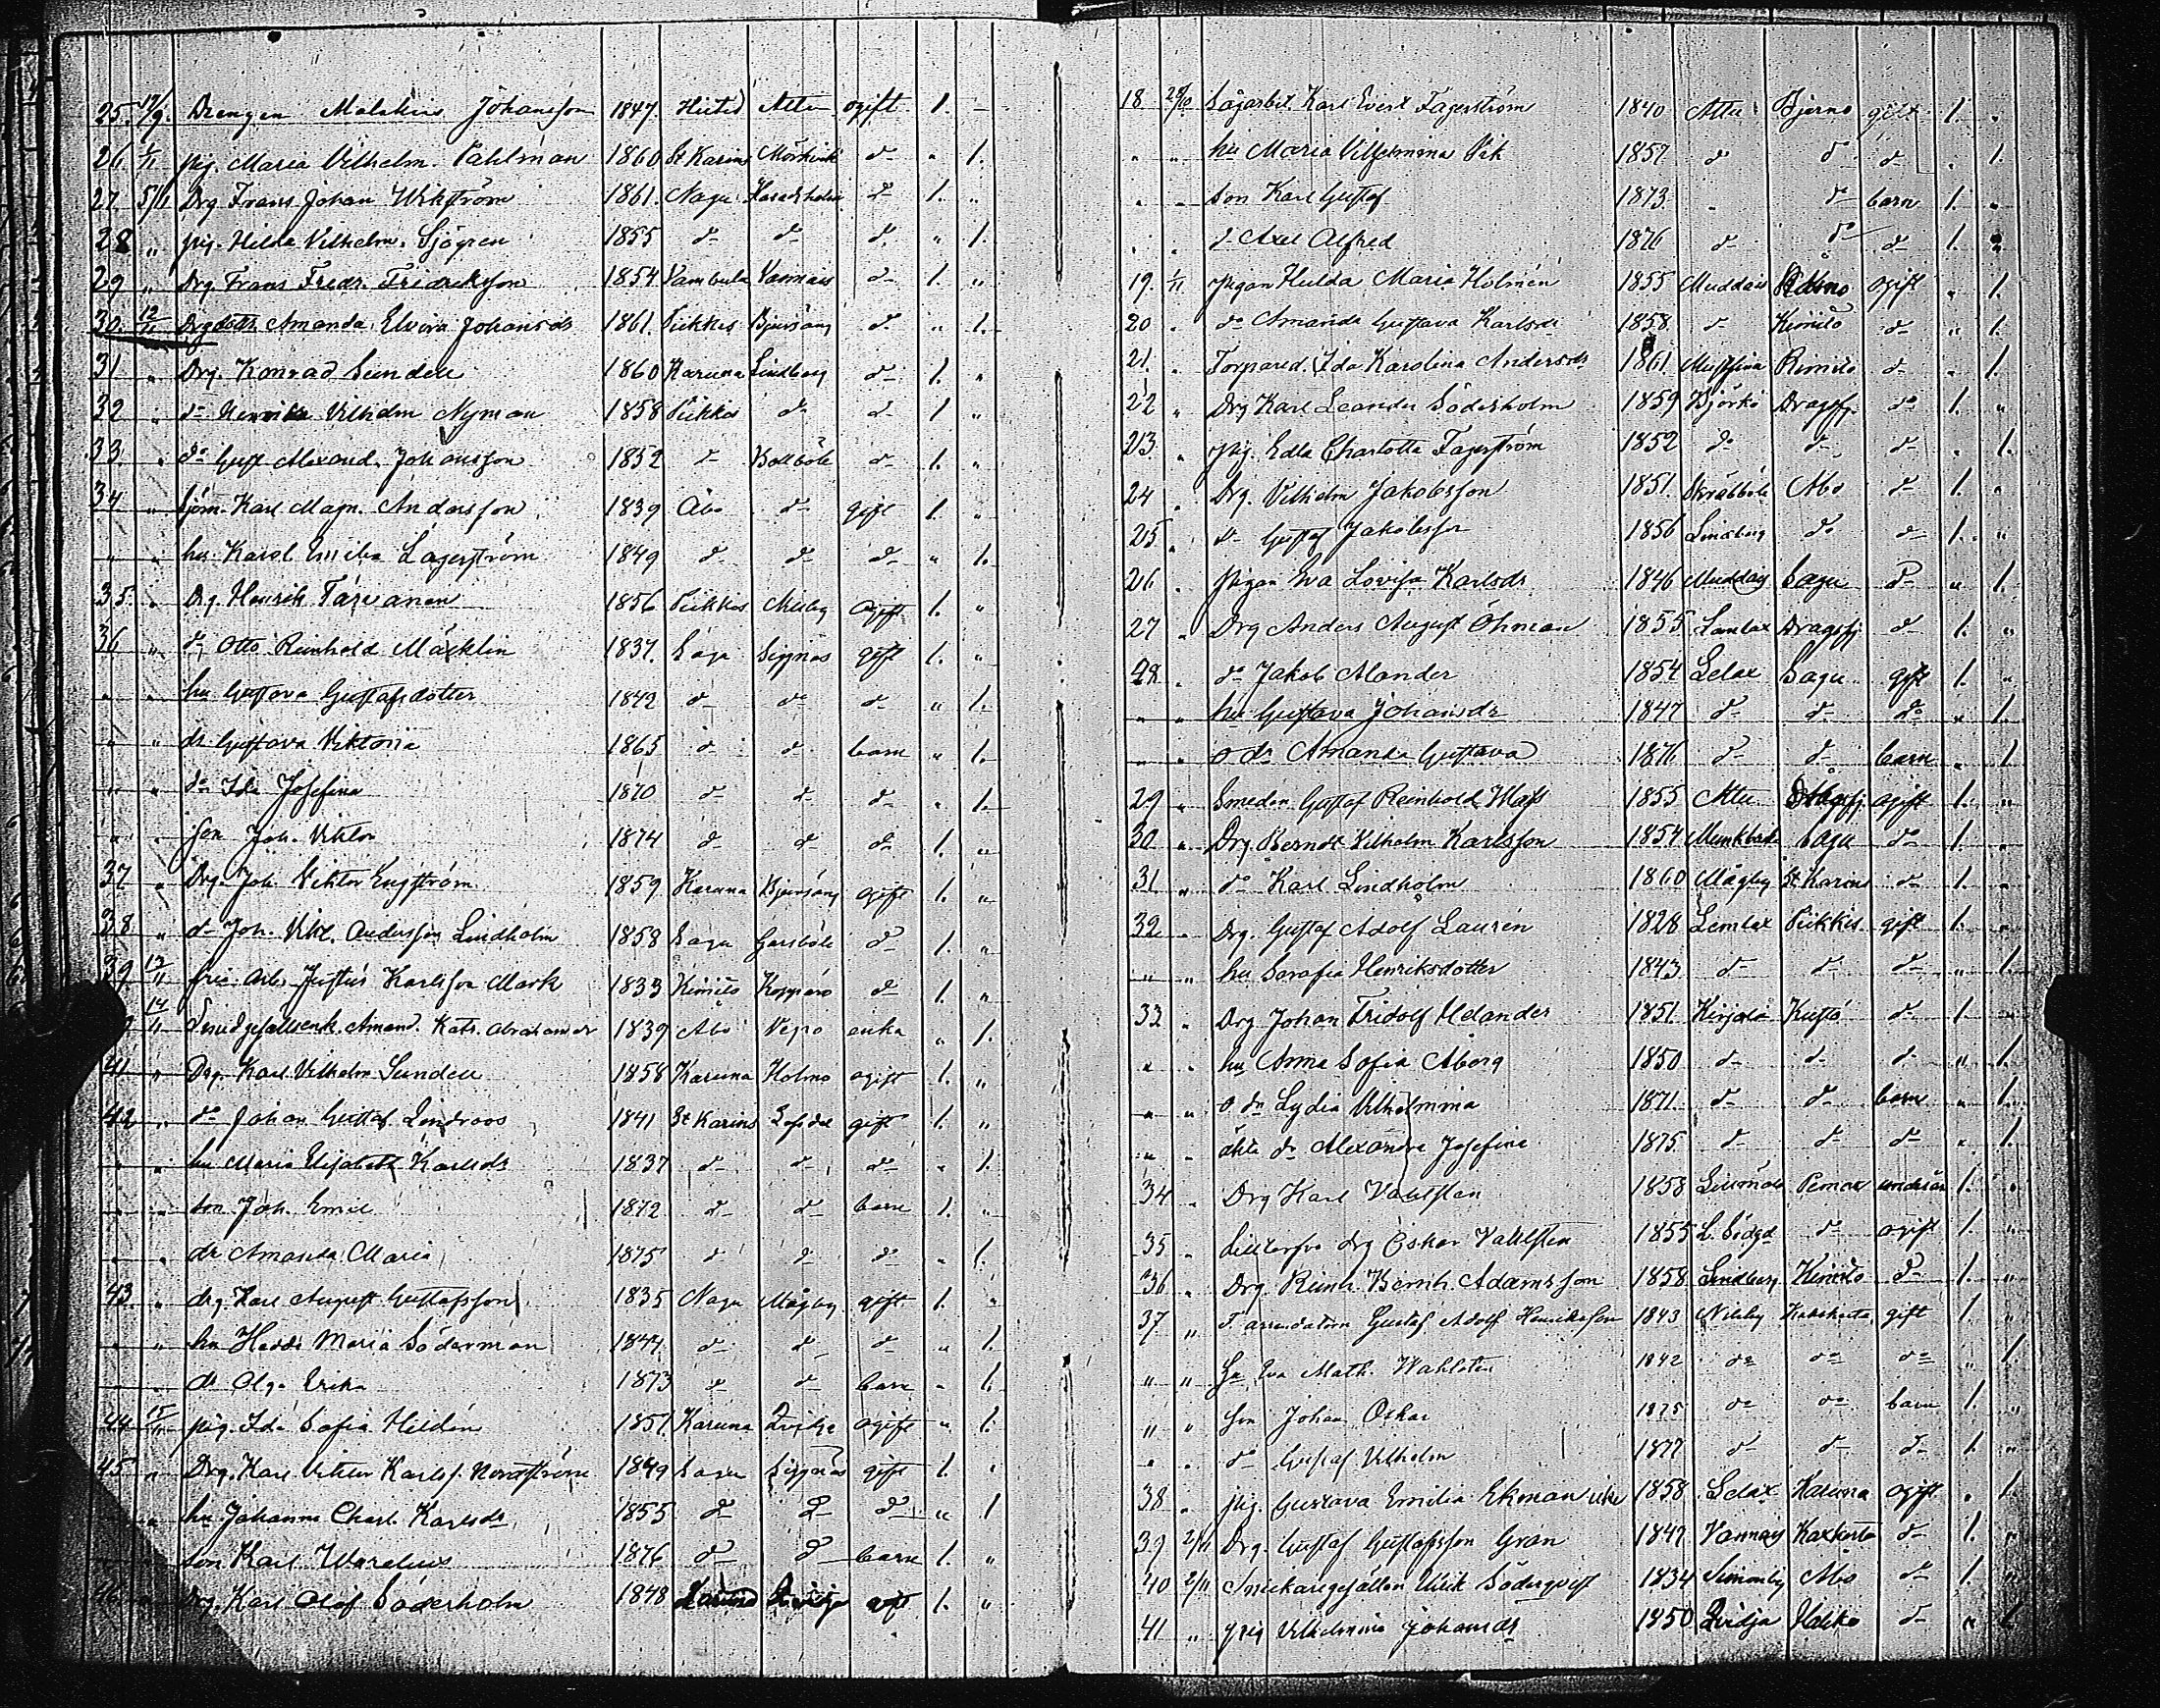 25. 17/9. Drengen Malakias Johansson 1847. Hitis Attu ogift 1. –
26. 1/11 pig. Maria Vilhelm. Påhlman 1860 St Karins Mörkvik do „ 1.
27. 5/11 Drg Frans Johan Wikström 1861. Nagu do 1. „
28 „ pig. Hilda Vilhelm. Sjögren 1855 do do do „ 1.
29 „ Drg Frans Fredr. Fredriksson 1854 Vambula do 1. „
30. 12/11 Drgdottr Amanda Elvira Johansdr 1861. Piikkis Bjursäng do „ 1.
31 „ Drg. Konrad Sundell 1860 Karuna Lindberg do 1. „
32 „ do Henrik Vilhelm Nyman 1858 Piikkis do do 1 „
33. „ do Gust Alexand. Johansson 1852 do Kollböle do 1. „
34 „ Karl Magn. Andersson 1839 Åbo do gift 1. „
„ „ hu Karol Emilia Lagerström 1849 do do do „ 1.
35 „ Drg. Henrik 1856 Piikkis ogift 1. „
36 „ do Otto Reinhold Mäcklin 1837. Sagu Siggnäs gift 1. „
„ „ hu Gustava Gustafsdotter 1842 do do do „ 1.
„ „ dr Gustava Viktoria 1865 do do barn „ 1.
„ „ do Ida Josefina 1870 do do do „ 1.
„ „ son Joh. Viktor 1874 do do do 1. „
37 „ Drg. Joh Viktor Engström 1859. Karuna Bjursäng ogift 1. „
38 „ do Joh. Andersson Lindholm 1858 Sagu Garsböle do 1. „
39 13/11 Justus Karlsson Mark 1833 Kimito do 1. „
14/11 Amand. Katr. Abrahamsdr 1839 Åbo Vepo enka „ 1.
41 „ Drg. Karl Vilhelm Sundell 1858 Karuna Holmo ogift 1. „
42 „ do Johan Gustaf Lindroos 1841 St Karins Lofsdal gift 1. „
„ „ hu Maria Elisabeth Karlsdr 1837 do do do „ 1.
„ „ son Joh. Emil 1872 do do barn 1. „
„ „ dr Amanda Maria 1875 do do do „ 1.
43. „ drg Karl August Gustafsson 1835 Nagu Mågby gift 1. „
„ „ hu Hedda Maria Söderman 1844 do do do „ 1.
„ „ dr Olga Erika 1873 do do barn „ 1.
44 15/11 pig. Ida Sofia Heldén 1851 Karuna Qvidja ogift „ 1.
45 „ Drg. Karl Viktor Karlss. Nordström 1849 Sagu Siggnäs gift 1. „
„ hu Johanna Charl. Karlsdr 1855 do do do „ 1
son Karl 1876 do do barn 1. „
46 Drg. Karl Olof Söderholm 1848 Karuna Qvidja gift 1. „
18 28/10 Sågarbet. Karl Evert Fagerström 1840 Attu Bjerno gift 1. „
„ „ hu Maria Vilhelmina 1857 do do do „ 1.
„ „ son Karl Gustaf 1873. „ do barn 1. „
„ „ do Axel Alfred 1876 do do do 1. „
19. 1/11 Pigan Hulda Maria Holmén 1855 Muddais ogift „ 1.
20 „ do Amanda Gustava Karlsdr 1858 do Kimito do „ 1.
21. „ Ida Karolina Andersdr 1861. Kimito do „ 1.
22 „ Drg Karl Leander Söderholm 1859 Björkö Dragsfj. do 1. „
23. „ pig. Edla Charlotta Fagerström 1852 do do do „ 1.
24 „ Drg. Vilhelm Jakobsson 1851. Skräbböle Åbo do 1. „
25 „ do Gustaf Jakobsson 1856 Lindberg do do 1. „
26 „ Pigan Eva Lovisa Karlsdr 1846 Muddais Sagu do „ 1.
27 „ Drg Anders August Öhman 1855 Lemlax Dragsfj do 1. „
28 „ do Jakob Alander 1854 Lelax Sagu gift 1. „
„ „ hu Gustava Johansdr 1847 do do do „ 1.
„ „ o dr Amanda Gustava 1876 do do barn „ 1.
29 „ Smeden Gustaf Reinhold 1855 Attu ogift 1. „
30 „ Drg. Berndt Vilhelm Karlsson 1854 Sagu do 1. „
31 „ do Karl Lindholm 1860 Mågby St Karins do 1. „
32 „ Drg. Gustaf Adolf Laurén 1828 Lemlax Piikkis gift 1. „
„ „ hu Serafia Henriksdotter 1843 do do do „ 1.
33 „ Drg Johan Fridolf Helander 1851 Kirjala Kustö do 1. „
„ „ hu Anna Sofia Åberg 1850 do do do „ 1.
„ „ o. dr Lydia Vilhelmina 1871. do do barn „ 1.
„ „ äkta dr Alexandra Josefina 1875. do do do „ 1.
34 „ Drg Karl Vahlsten 1858 Pemar 1. „
35 „ drg Oskar Vahlsten 1855 do ogift 1. „
36 „ Drg Reinh. Bernh. Adamsson 1858. Lindberg Kimito do 1. „
37 „ Gustaf Adolf Henriksson 1843 Nilsby Kakskerta gift 1 „
„ „ Eva Math. Wahlsten 1842 do do do „ 1.
„ „ Son Johan Oskar 1875 do do barn 1. „
„ „ do Gustaf Vilhelm 1877 do do do 1. „
38 „ pig. Gustava Emilia Ekman 1858 Lelax Karuna ogift „ 1.
39 2/11 Drg. Gustaf Gustafsson Gran 1847 Vannais Kaxkerta do 1. „
40 2/11 Snickaregesällen Ulrik Söderqvist 1834 Simonby Åbo do 1. „
41 „ pig Vilhelmina Johansdr 1850 Qvidja Haliko do „ 1.